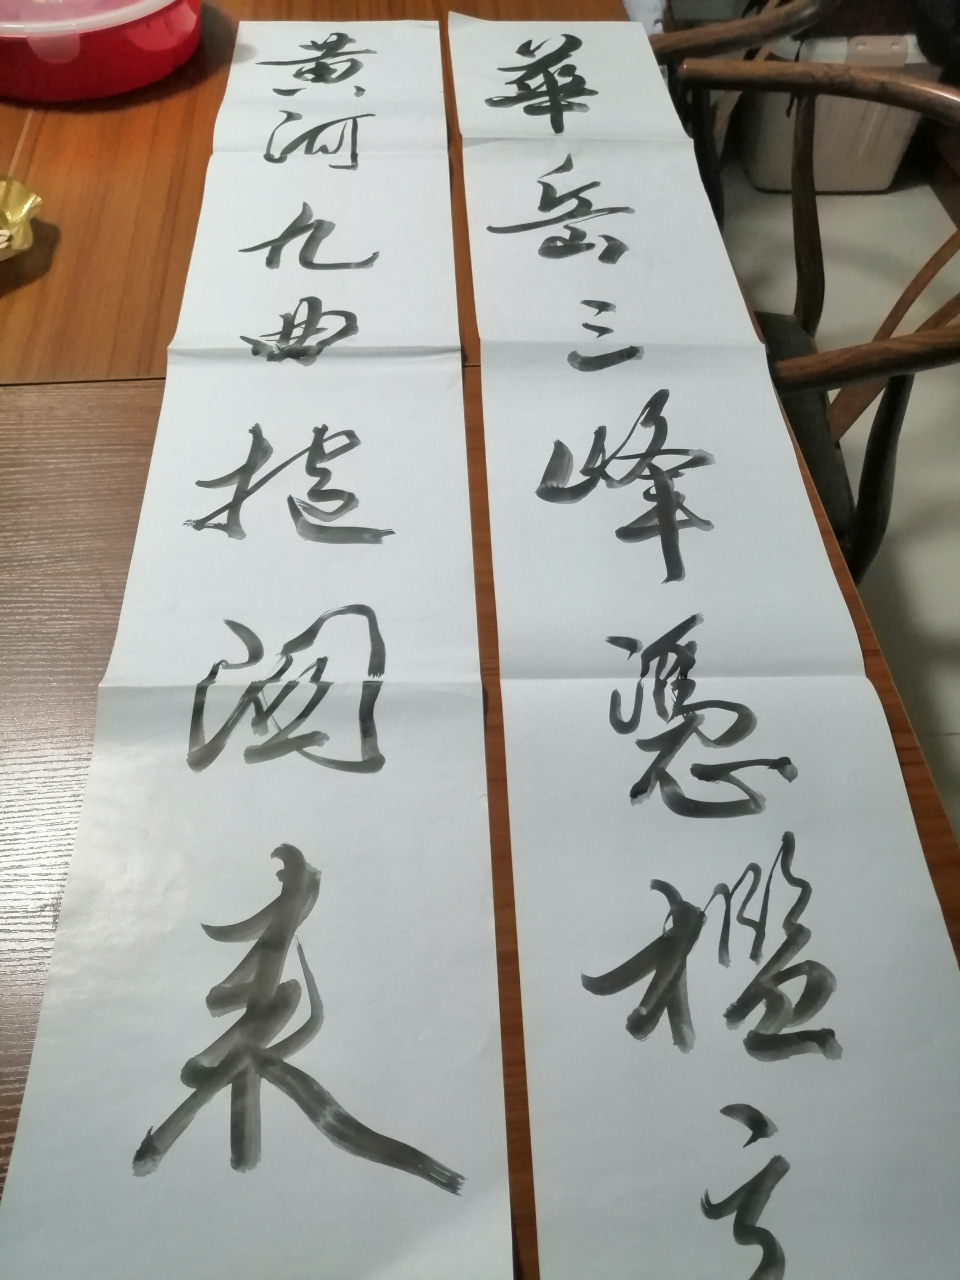 華岳三峰憑檻立
黄河九曲抱關來